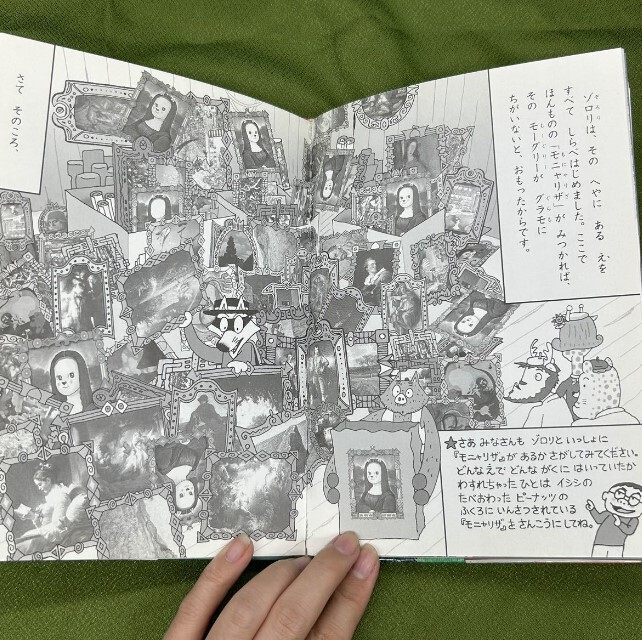 ゾロリは、その へやに ある えを
すべて しらべはじめました。ここで
ほんものの「モニャリザ」が みつかれば、
その モーグリーが グラモに
ちがいないと、おもったからです。
さて そのころ、
★さあ みなさんも ゾロリと いっしょに
『モニャリザ』が あるか さがしてみてください。
どんなえで どんな がくに はいっていたか
わすれちゃった ひとは イシシの
たべおわった ピーナッツの
ふくろに いんさつされている
『モニャリザ』を さんこうにしてね。